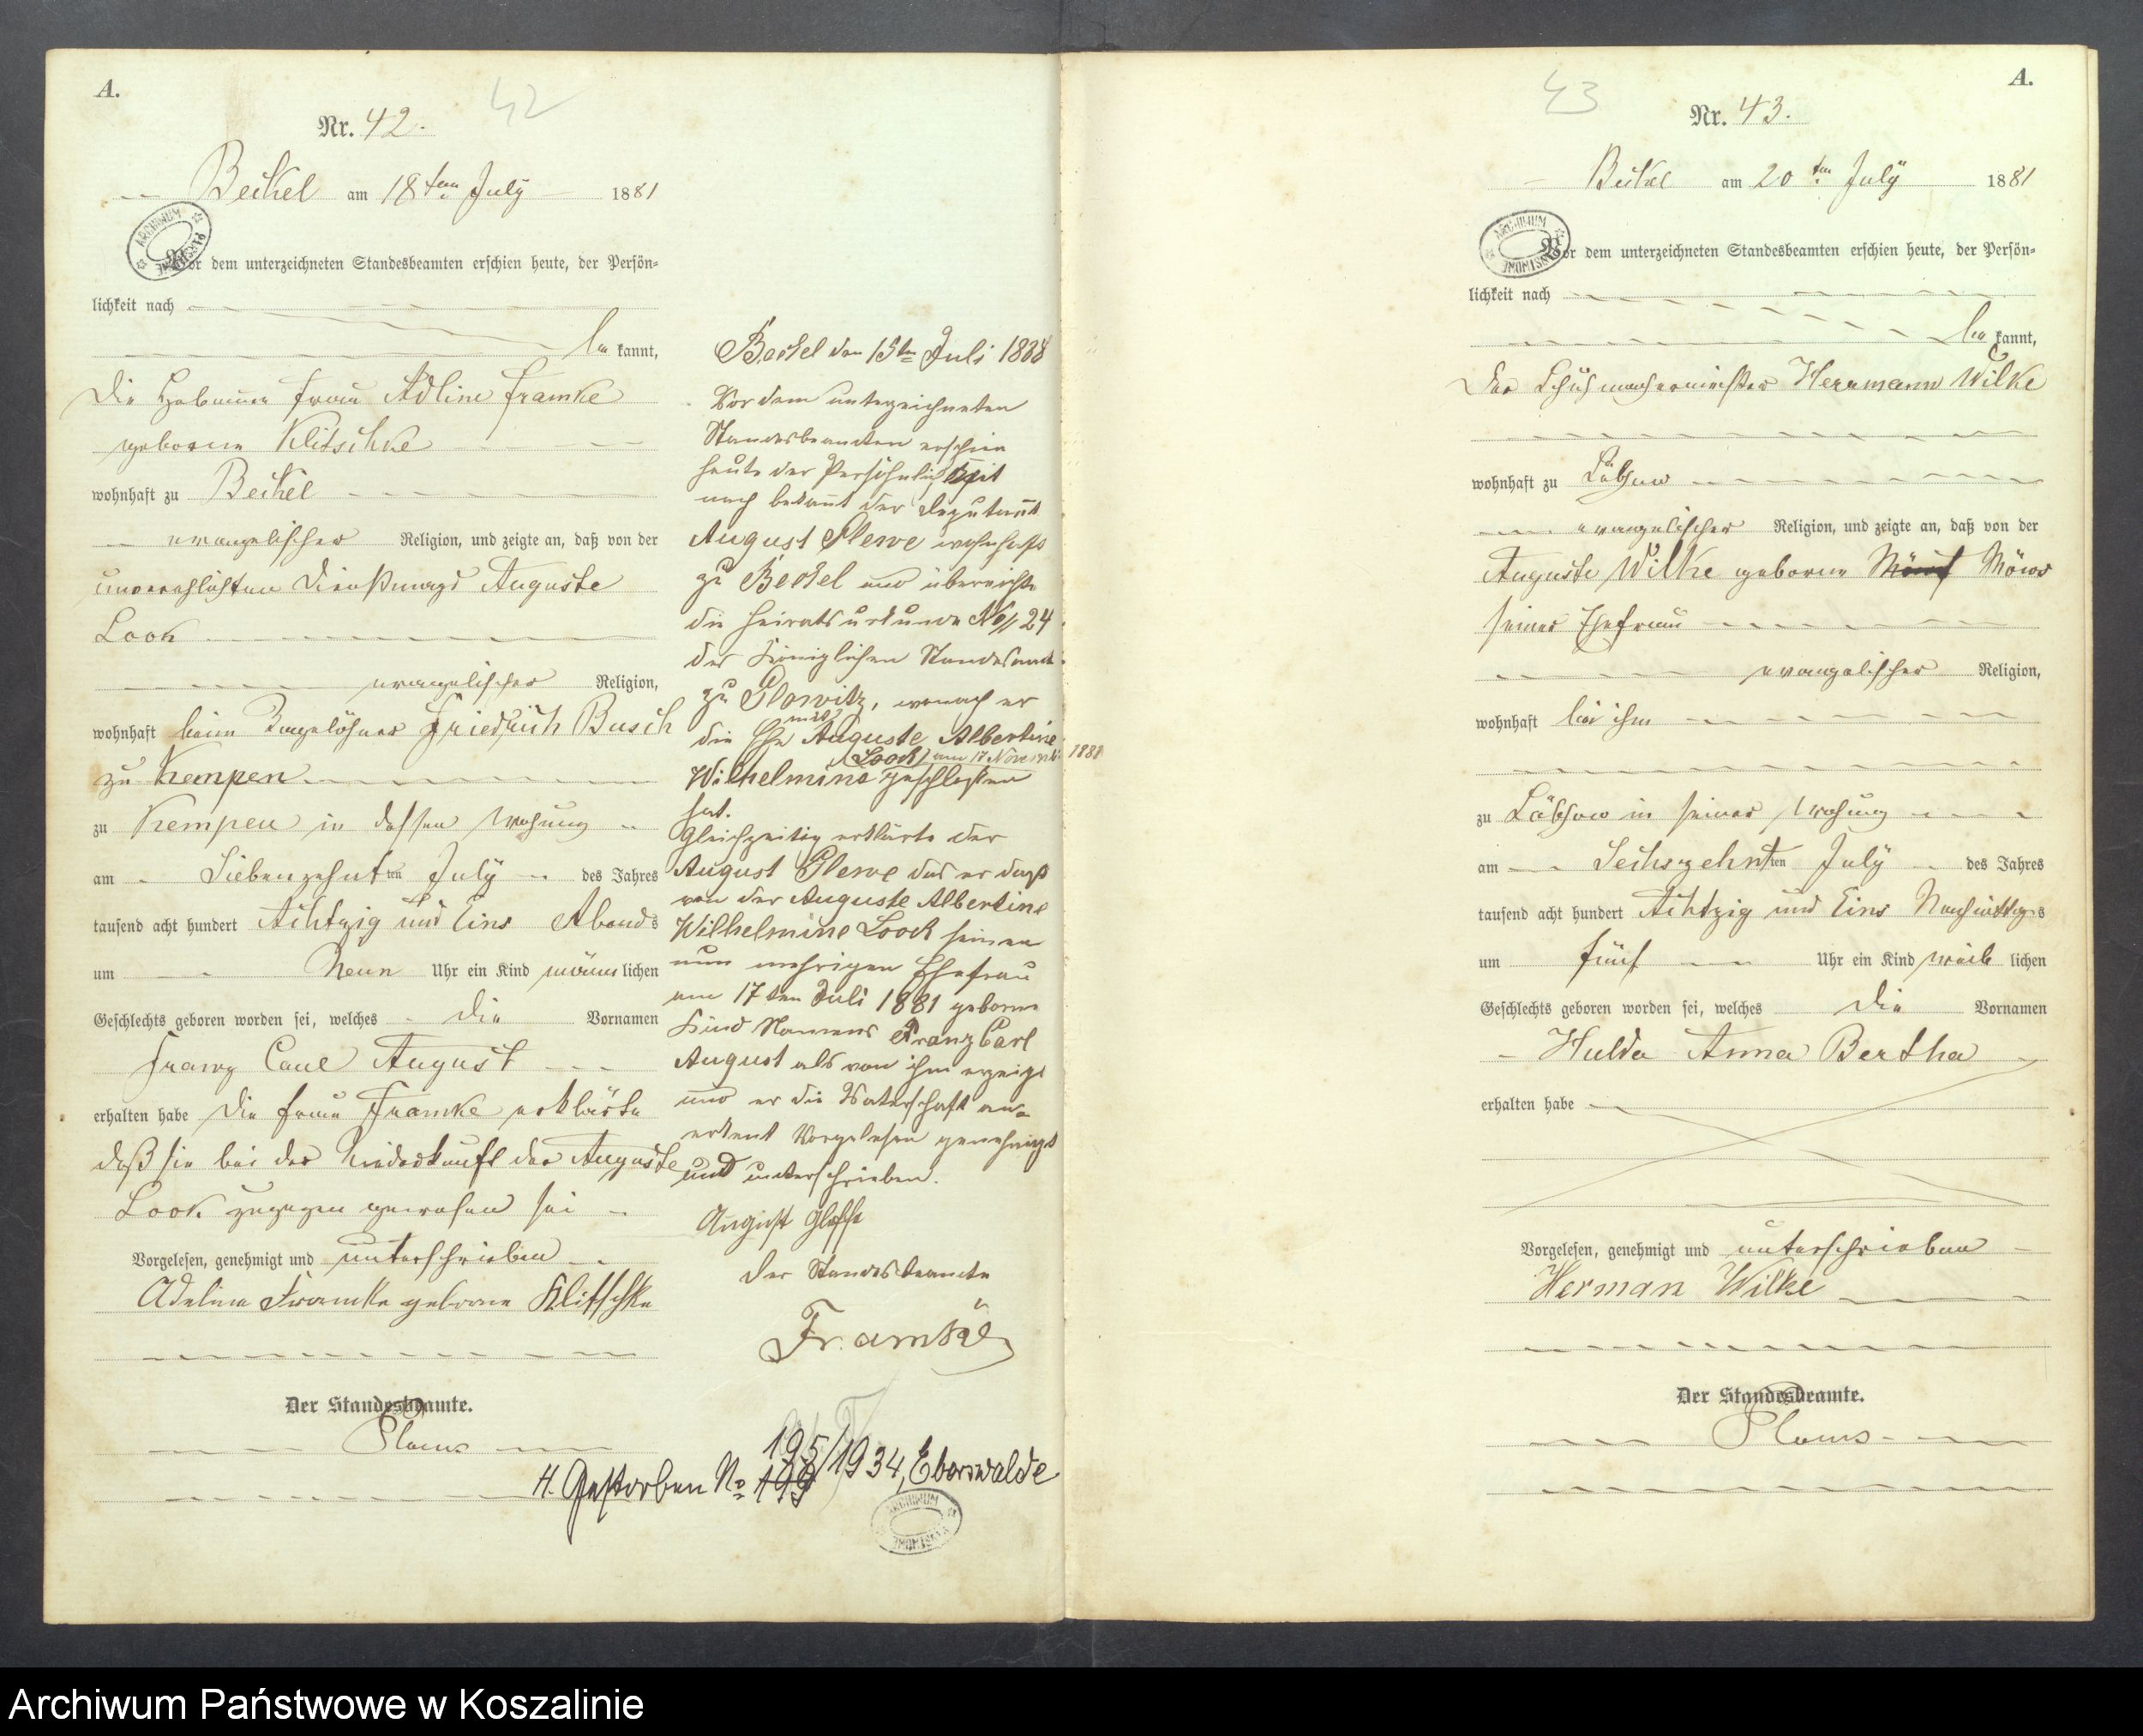 A.
42
Nr. 42.
Beckel am 18ten July 1881
Vor dem unterzeichneten Standesbeamten erschien heute, der Persön-
lichkeit nach
be kannt,
die Hebamme Frau Adline Framke
geborene Klitschke
wohnhaft zu Beckel
evangelischer Religion, und zeigte an, daß von der
unverehlichten Dienstmagd Auguste
Look
evangelischer Religion,
wohnhaft beim Tagelöhner Friedrich Busch
zu Kempen
zu Kempen in dessen Wohung
am Siebenzehnten July des Jahres
tausend acht hundert Achtzig und Eins Abends
um Neun Uhr ein Kind männlichen
Geschlechts geboren worden sei, welches die Vornamen
Franz Carl August
erhalten habe die Frau Framke erklärte
daß sie bei der Niederkunft der Auguste
Look zugegen gewesen sei
Vorgelesen, genehmigt und unterschrieben
Adeline Framke geborne Klitschke
Der Standesbeamte.
Beckel den 15ten Juli 1888
Vor dem unterzeichneten
Standesbeamten erschien
heute der Persöhnlichkeit
nach bekannt der Deputant
August Plewe wohnhaft
zu Beckel und überreichte
die Heiratsurkunde No 24
des Königlichen Standesamt
zu Glowitz, wonach er
die Ehe mit Auguste Albertine
(Look) am 17 November 1888
Wilhelmine geschlossen
hat.
Gleichzeitig erklärte der
August Plewe das er daß
von der Auguste Albertine
Wilhelmine Look seinen
nun mehrigen Ehefrau
am 17ten Juli 1881 geborne
Kind Namens Franz Carl
August als von ihm erzeigt
und er die Vaterschaft an-
erkent Vorgelesen genehmigt
und unterschrieben.
Der Standesbeamte
Framke
H. Gestorben No 199 195/1934, Eberswalde
ARCHIWUM
A.
43
Nr. 43.
Beckel am 20ten July 1881
ARCHIWUM
Vor dem unterzeichneten Standesbeamten erschien heute, der Persön-
lichkeit nach
be kannt,
der Schuhmachermeister Herrmann Wilke
wohnhaft zu
evangelischer Religion, und zeigte an, daß von der
Auguste Wilke geborne Möws
seiner Ehefrau
evangelischer Religion,
wohnhaft bei ihm
zu in seiner Wohung
am Sechszehnten July des Jahres
tausend acht hundert Achtzig und Eins Nachmittags
um fünf Uhr ein Kind weib lichen
Geschlechts geboren worden sei, welches die Vornamen
Hulda Anna Bertha
erhalten habe
Vorgelesen, genehmigt und unterschrieben
Herman Wilke
Der Standesbeamte.
Archiwum Państwowe w Koszalinie